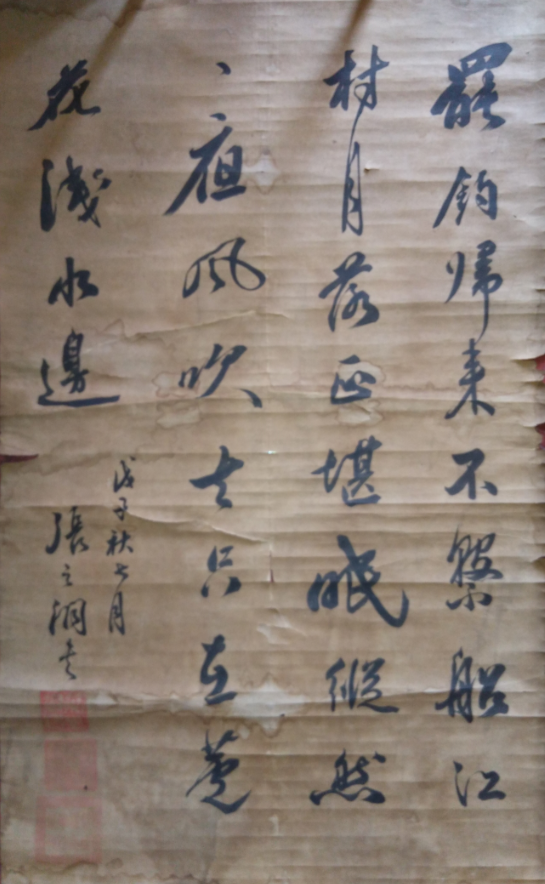 罷釣帰来不繫船江
村月落正堪眠縱然
一夜風吹去只在蘆
花淺水邊
戊子秋七月
張之